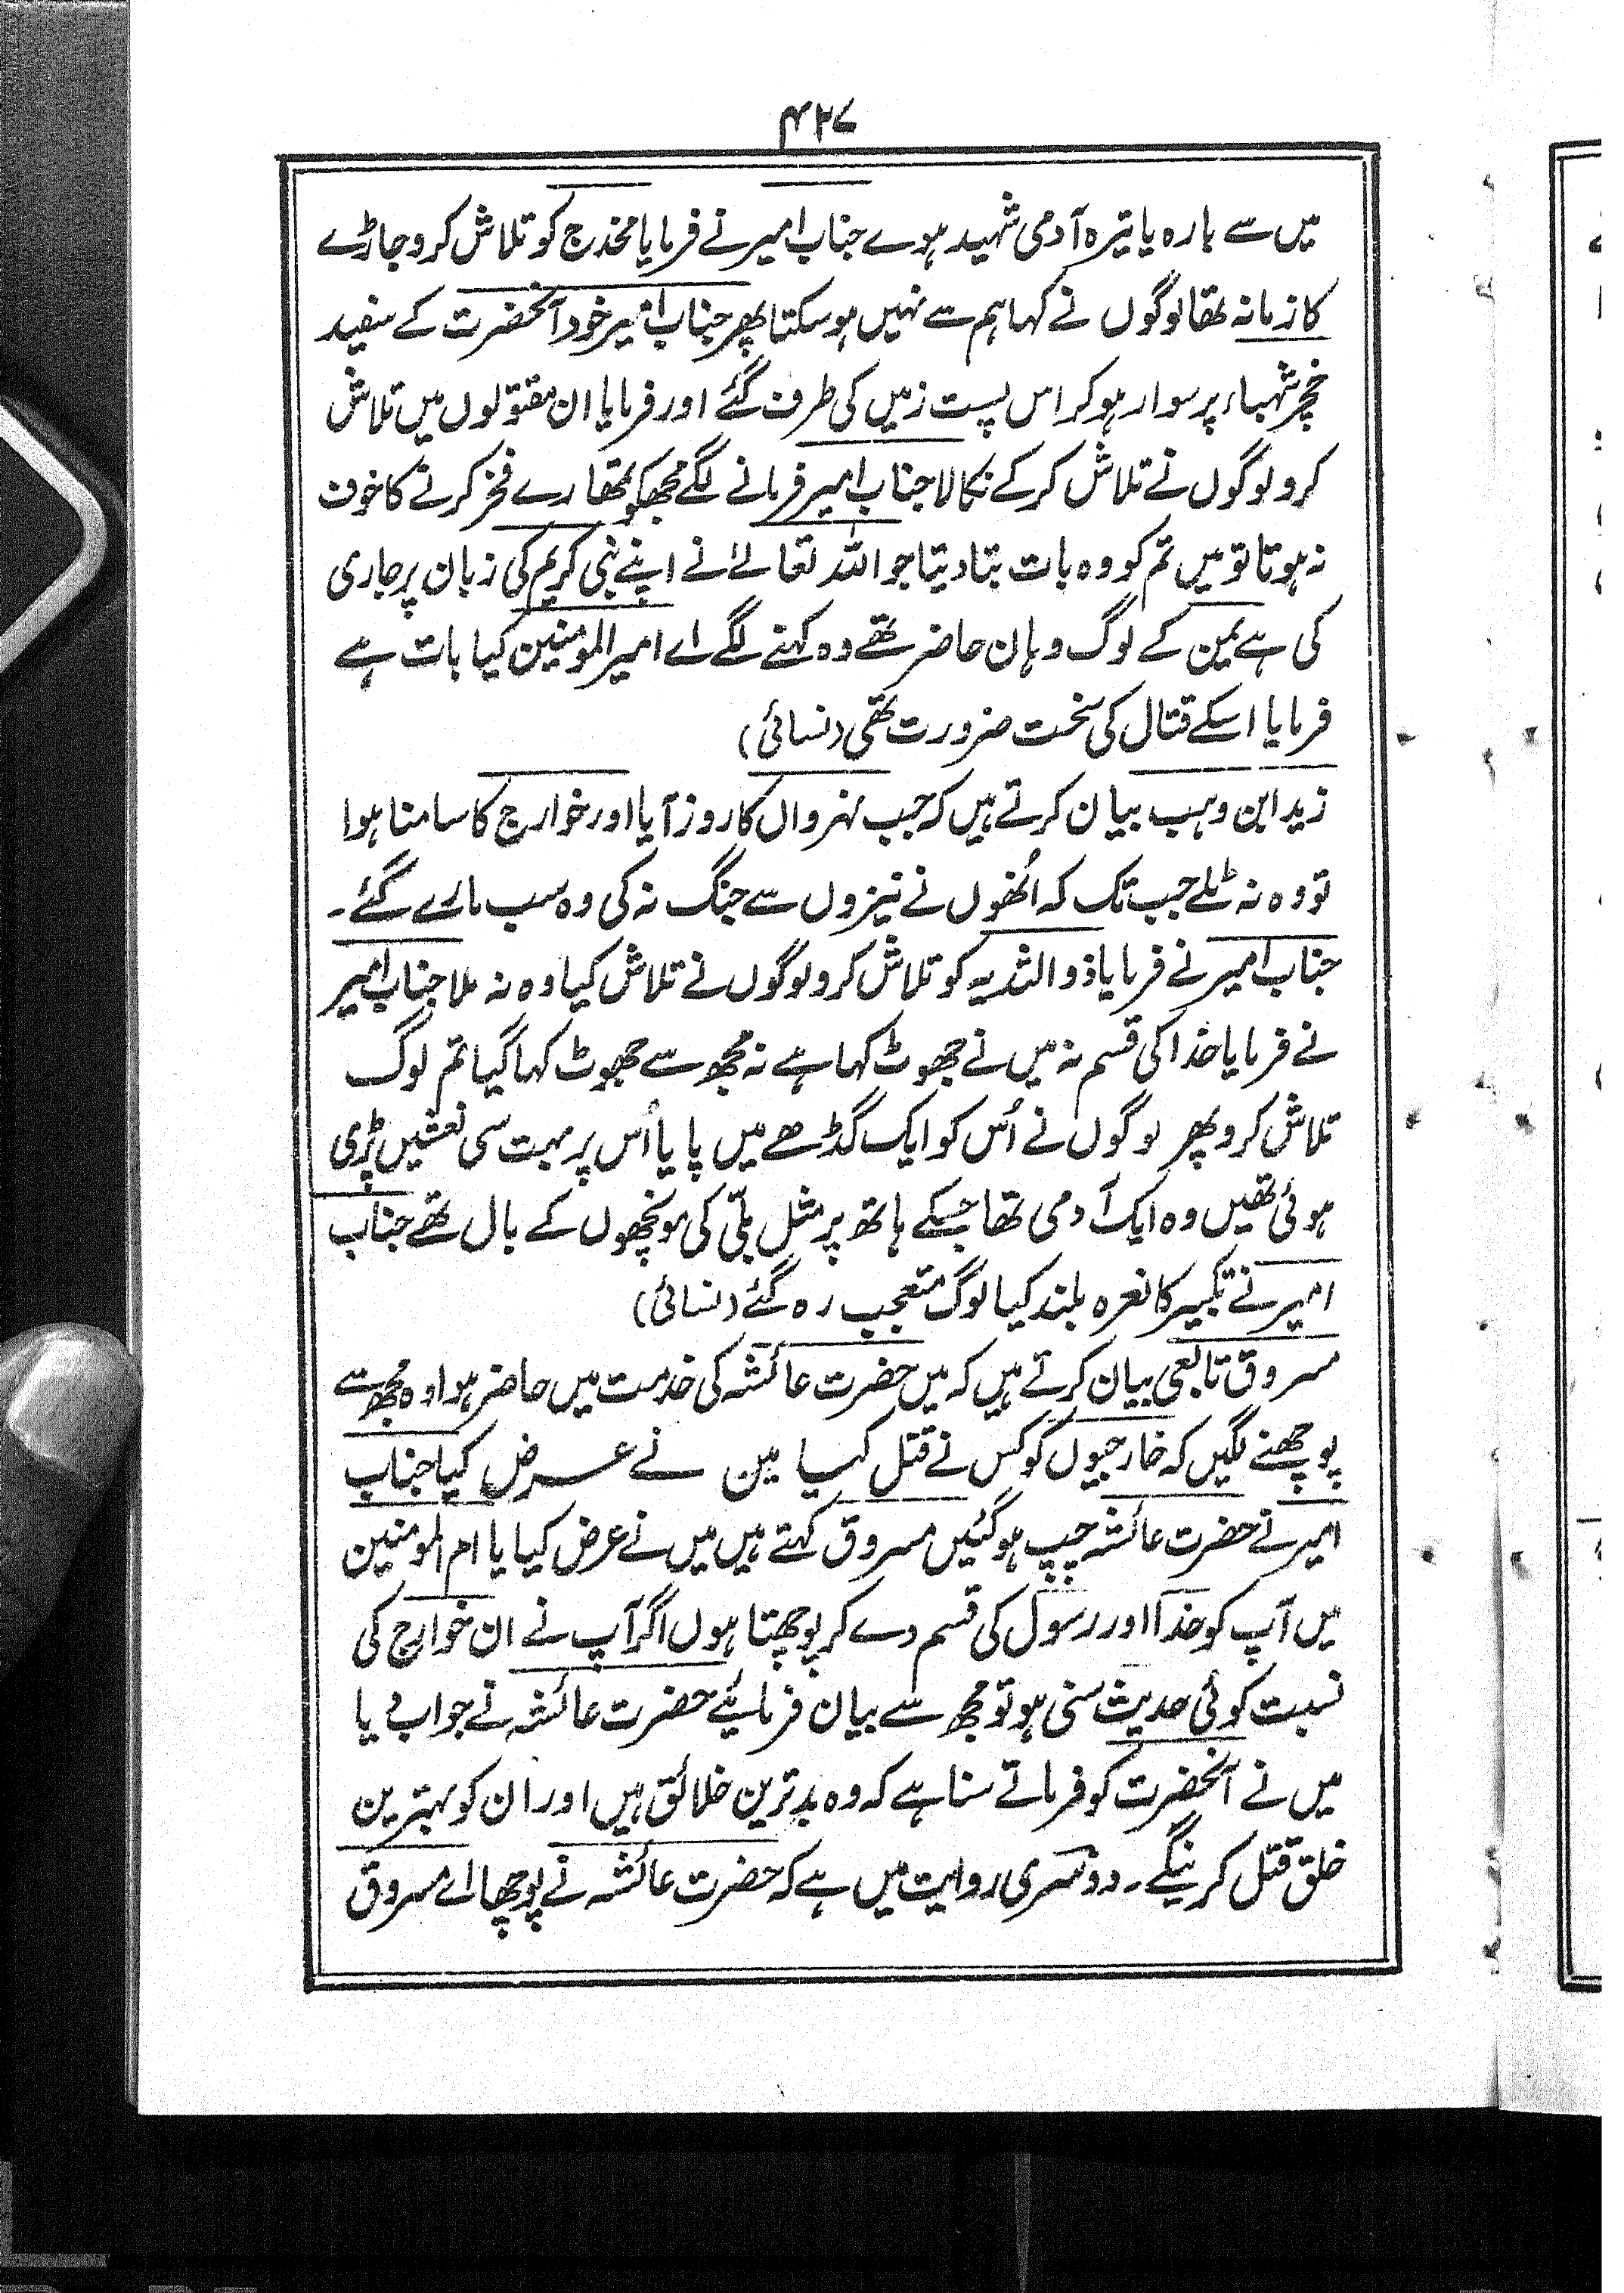 ۴۲۷
میں سے بارہ یا تیرہ آدمی شہید ہوے جناب امیر نے فرمایا مخدج کو تلاش کرو جاڑے
کا زمانہ تھا لوگوں نے کہا ہم سے نہیں ہو سکتا پھر جناب امیر خود آنحضرت کے سفید
خچر شہباء پر سوار ہو کر اس پست زمیں کی طرف گئے اور فرمایا ان مقتولوں میں تلاش
کرو لوگوں نے تلاش کر کے نکالا جناب امیر فرمانے لگے مجھکو تمھارے فخر کرنے کا خوف
نہ ہوتا تو میں تم کو وہ بات بتا دیتا جو اللہ تعالےٰ نے اپنے نبی کریم کی زبان پر جاری
کی ہے یمن کے لوگ وہان حاضر تھے وہ کہنے لگے اے امیر المومنین کیا بات ہے
فرمایا اسکے قتال کی سخت ضرورت تھی (نسائی)
زید ابن وہب بیان کرتے ہیں کہ جب نہروال کا روز آیا اور خوارج کا سامنا ہوا
تو وہ نہ ٹلے جب تک کہ اُنھوں نے نیزوں سے جنگ نہ کی وہ سب مارے گئے۔
جناب امیر نے فرمایا ذوالثدیہ کو تلاش کرو لوگوں نے تلاش کیا وہ نہ ملا جناب امیر
نے فرمایا خدا کی قسم نہ میں نے جھوٹ کہا ہے نہ مجھ سے جھوٹ کہا گیا تم لوگ
تلاش کرو پھر لوگوں نے اُس کو ایک گڈھے میں پایا اُس پر بہت سی نعشیں پڑی
ہوئی تھیں وہ ایک آدمی تھا جسکے ہاتھ پر مثل بلّی کی مونچھوں کے بال تھے جناب
امیر نے تکبیر کا نعرہ بلند کیا لوگ متعجب رہ گئے (نسائی)
مسروق تابعی بیان کرتے ہیں کہ میں حضرت عائشہ کی خدمت میں حاضر ہوا وہ مجھ سے
پوچھنے لگیں کہ خارجیوں کو کس نے قتل کیا مین نے عرض کیا جناب
امیر نے حضرت عائشہ چپ ہو گئیں مسروق کہتے ہیں میں نے عرض کیا یا ام المومنین
میں آپ کو خدا اور رسول کی قسم دے کر پوچھتا ہوں اگر آپ نے ان خوارج کی
نسبت کوئی حدیث سنی ہو تو مجھ سے بیان فرمایئے حضرت عائشہ نے جواب دیا
میں نے آنحضرت کو فرماتے سنا ہے کہ وہ بدترین خلائق ہیں اور ان کو بہترین
خلق قتل کرینگے۔ دوسری روایت میں ہے کہ حضرت عائشہ نے پوچھا اے مسروق